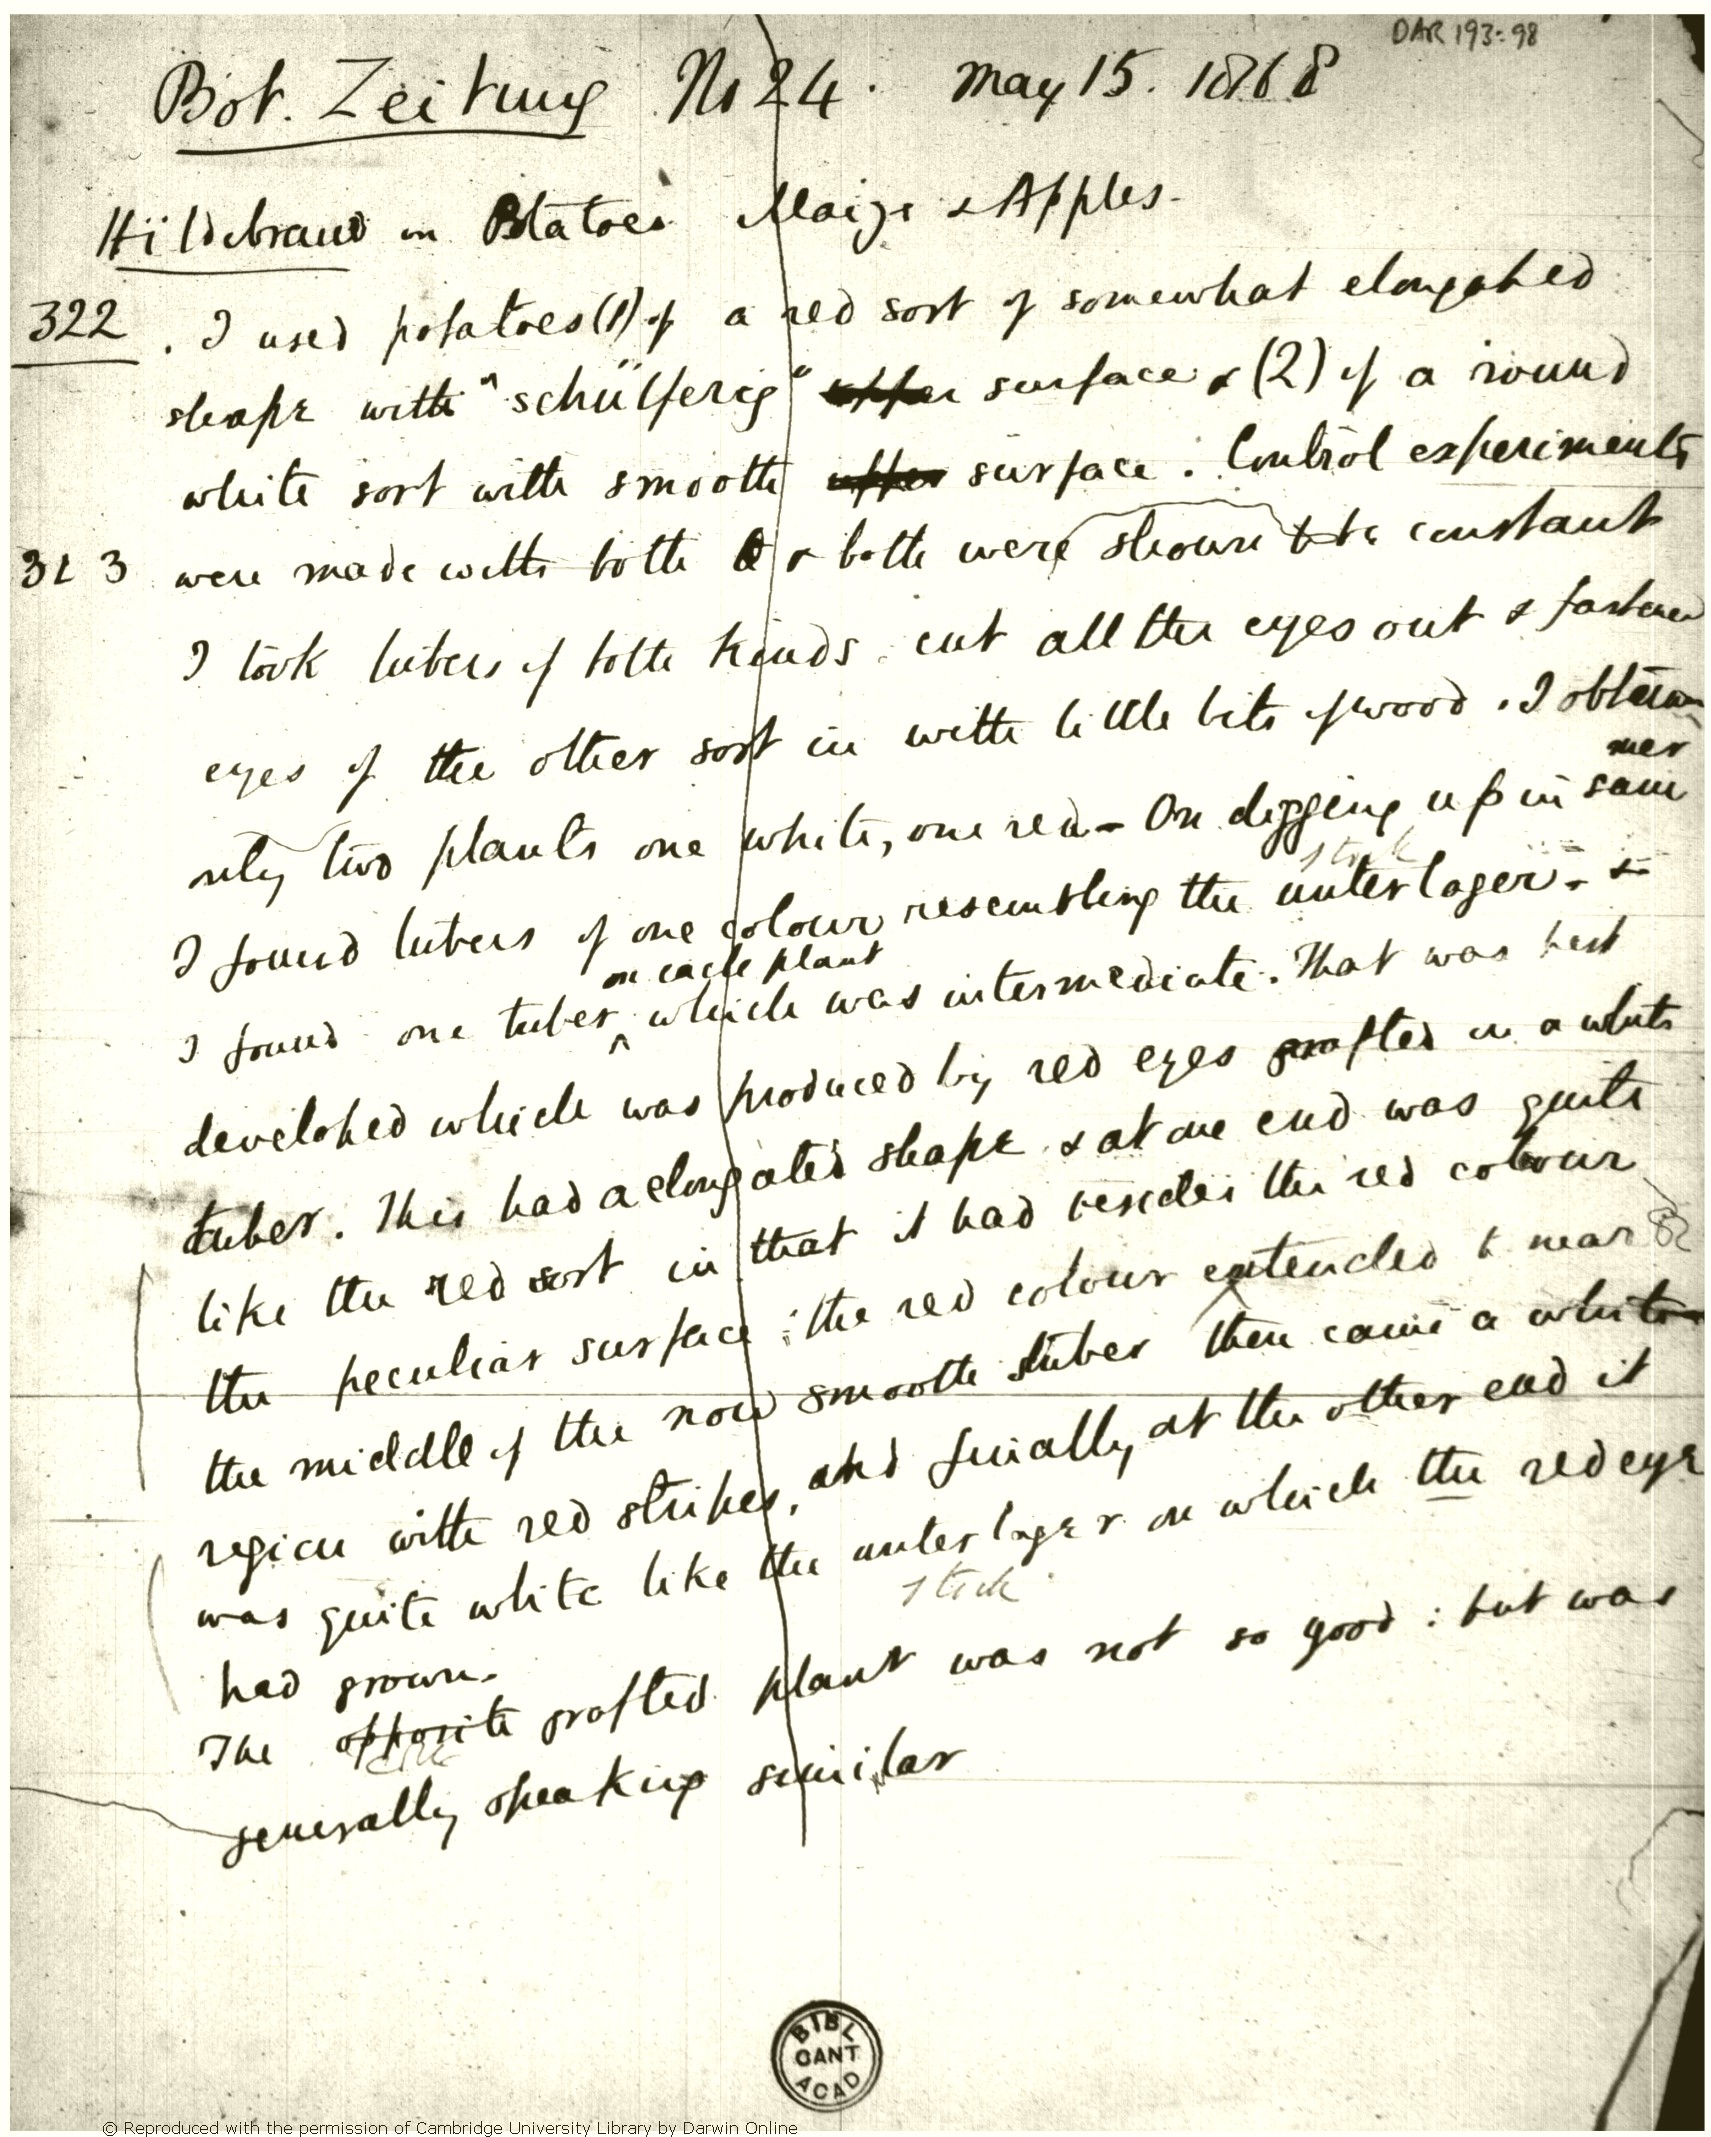 DAR 193:98
Bot. Zeitung No 24. May 15. 1868
Hildebrand on Potatoes Maize & Apples.
322. I used potatoes (1) of a red sort of somewhat elongated
shape with "schülferig" upper surface & (2) of a round
white sort with smooth upper surface. Control experiments
323 were made with both & both were shown to be constant
I took tubers of both kinds cut all the eyes out & fastened
eyes of the other sort in with little bits of wood. I obtain
only two plants one white, one red - On digging up in summer
stock
I found tubers of one colour resembling the unterlager - &
on each plant
I found one tuber ^ which was intermediate. That was best
developed which was produced by red eyes grafted in a white
tuber. This had a elongated shape & at one end was quite
like the red sort in that it had besides the red colour
the peculiar surface; the red colour extended to near
the middle of the now smooth tuber then came a white
region with red stripes, and finally at the other end it
was quite white like the unterlager on which the red eye
stock
had grown.
The opposite grafted plant was not so good: but was
generally speaking similar
BIBL
CANT
ACAD
© Reproduced with the permission of Cambridge University Library by Darwin Online